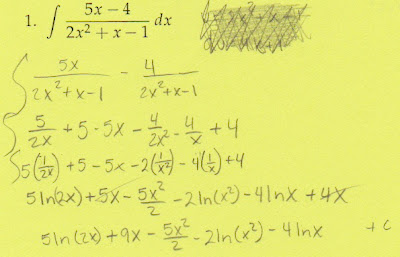 1. ∫ (5x − 4)/(2x² + x − 1) dx
∫ 5x/(2x²+x-1) - 4/(2x²+x-1)
∫ 5/2x + 5 - 5x - 4/2x² - 4/x + 4
∫ 5(1/2x) + 5 - 5x - 2(1/x²) - 4(1/x) + 4
5ln(2x) + 5x - 5x²/2 - 2ln(x²) - 4lnx + 4x
5ln(2x) + 9x - 5x²/2 - 2ln(x²) - 4lnx + c